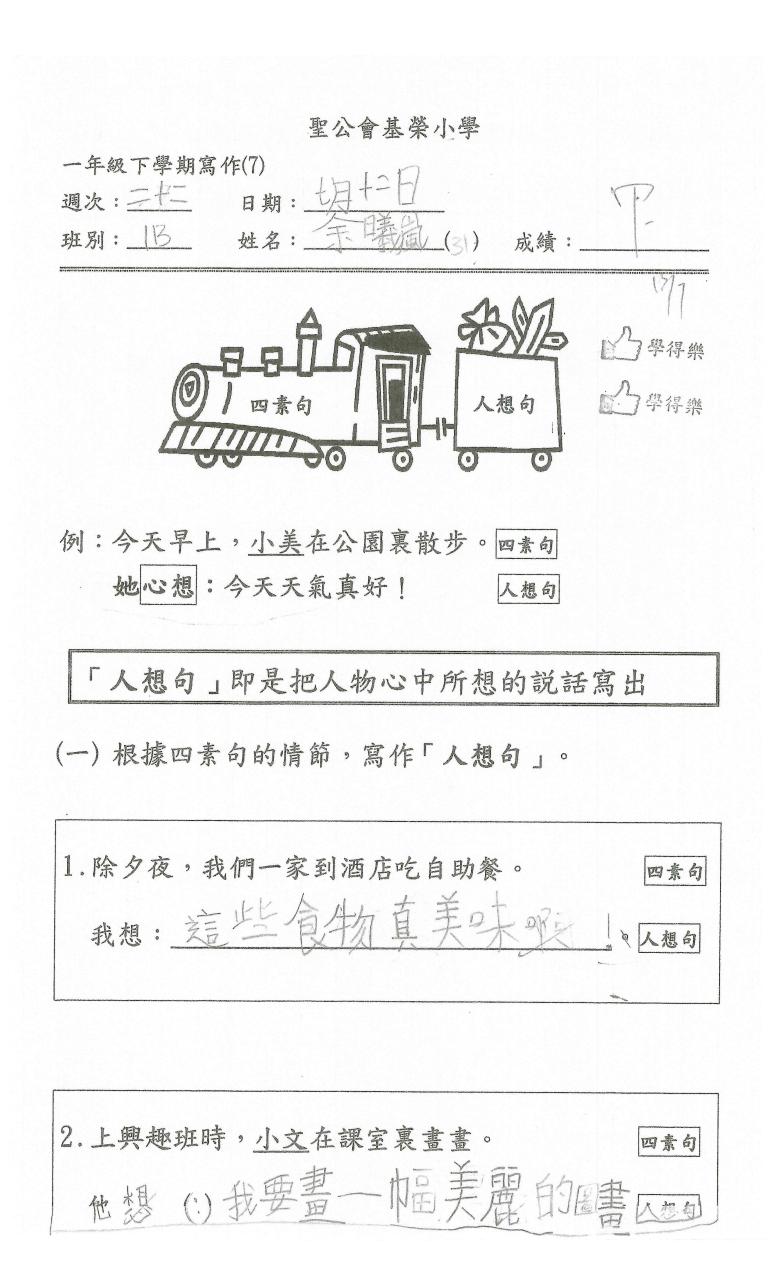 聖公會基榮小學
一年級下學期寫作(7)
週次：二十二 日期：七月十二日
班別：1B 姓名：余曦嵐(31) 成績：甲-
13/7
學得樂
學得樂
四素句 人想句
例：今天早上，小美在公園裏散步。四素句
她心想：今天天氣真好！ 人想句
「人想句」即是把人物心中所想的説話寫出
(一) 根據四素句的情節，寫作「人想句」。
1.除夕夜，我們一家到酒店吃自助餐。 四素句
我想：這些食物真美味啊！。人想句
2.上興趣班時，小文在課室裏畫畫。 四素句
他想(：)我要畫一幅美麗的圖畫 人想句